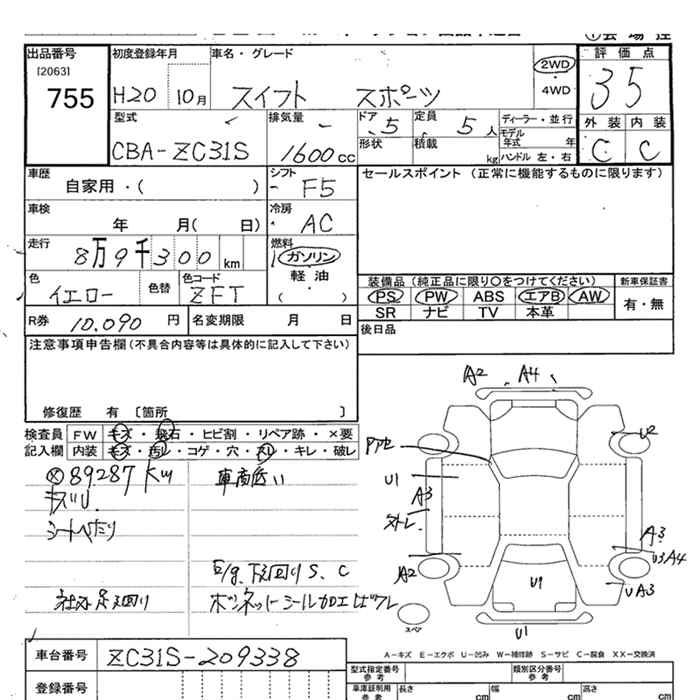 出品番号
[2063]
755
初度登録年月
H20 10月
車名・グレード
スイフト スポーツ
2WD
4WD
評価点
35
外装 内装
C C
型式
CBA-ZC31S
排気量
1600cc
ドア 5
形状
定員 5人
積載 kg
ディーラー・並行
モデル年式 年
ハンドル 左・右
車歴
自家用・( )
シフト
F5
セールスポイント (正常に機能するものに限ります)
車検
年 月( 日)
冷房
AC
走行
8万9千300km
燃料
ガソリン
軽油
( ・ )
色
イエロー
色替
色コード
ZFT
装備品 (純正品に限り○をつけてください)
PS PW ABS エアB AW
SR ナビ TV 本革
新車保証書
有・無
R券 10,090円
名変期限 月 日
後日品
注意事項申告欄(不具合内容等は具体的に記入して下さい)
修復歴 有 〔箇所 〕
検査員記入欄
FW キズ・飛石・ヒビ割・リペア跡・×要
内装 キズ・汚レ・コゲ・穴・スレ・キレ・破レ
89287Km
シートヘたり
車高低い
E/g、下廻りS、C
社外足廻り
ボンネットシール加工ハガレ
A2 A4
U2
U1
A3
外トレ
A2
A3
U3A4
UA3
U1
U1
スペア
A-キズ E-エクボ U-凹み W-補修跡 S-サビ C-腐食 XX-交換済
車台番号
ZC31S-209338
登録番号
型式指定番号
参考
類別区分番号
参考
車庫証明用
参考
長さ cm
幅 cm
高さ cm